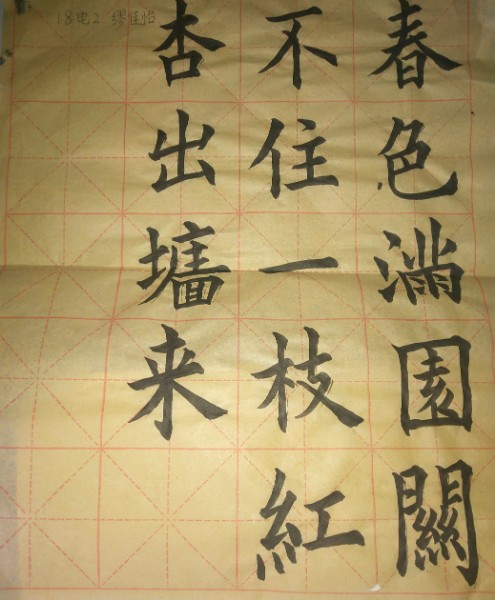 春色滿園關
不住一枝紅
杏出墻来
18电2 缪佳怡